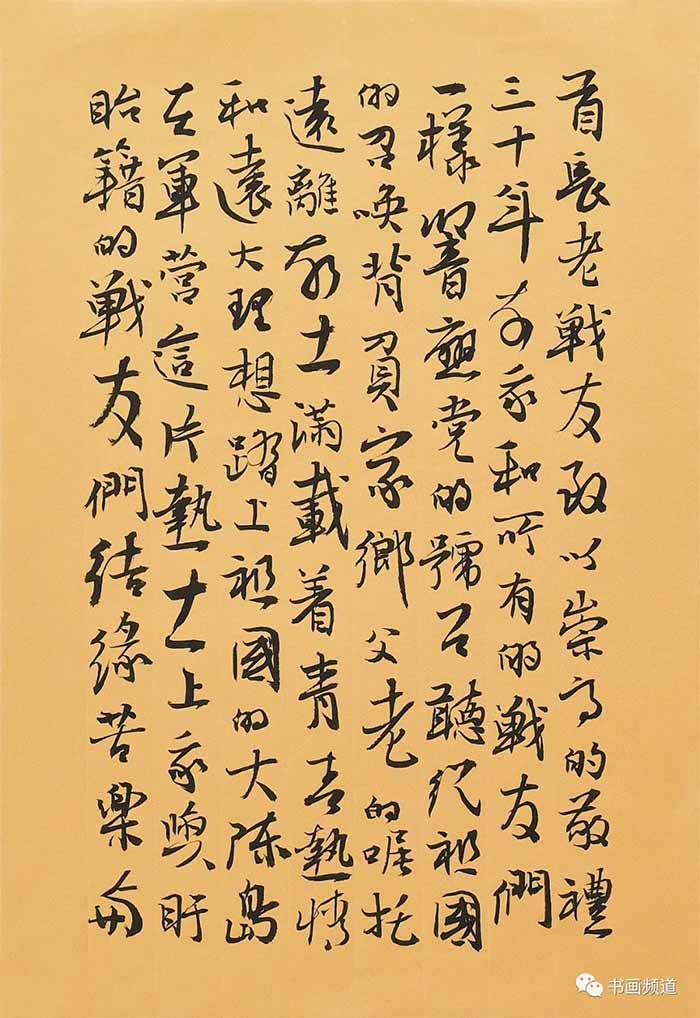 首長老戰友致以崇高的敬禮
三十年前我和所有的戰友們
一樣響應党的號召聽從祖國
的召喚背負家鄉父老的囑托
遠離故土滿載着青春熱情
和遠大理想踏上祖國的大陳島
在軍營這片熱土上我與盱
眙籍的戰友們結緣苦樂與
书画频道